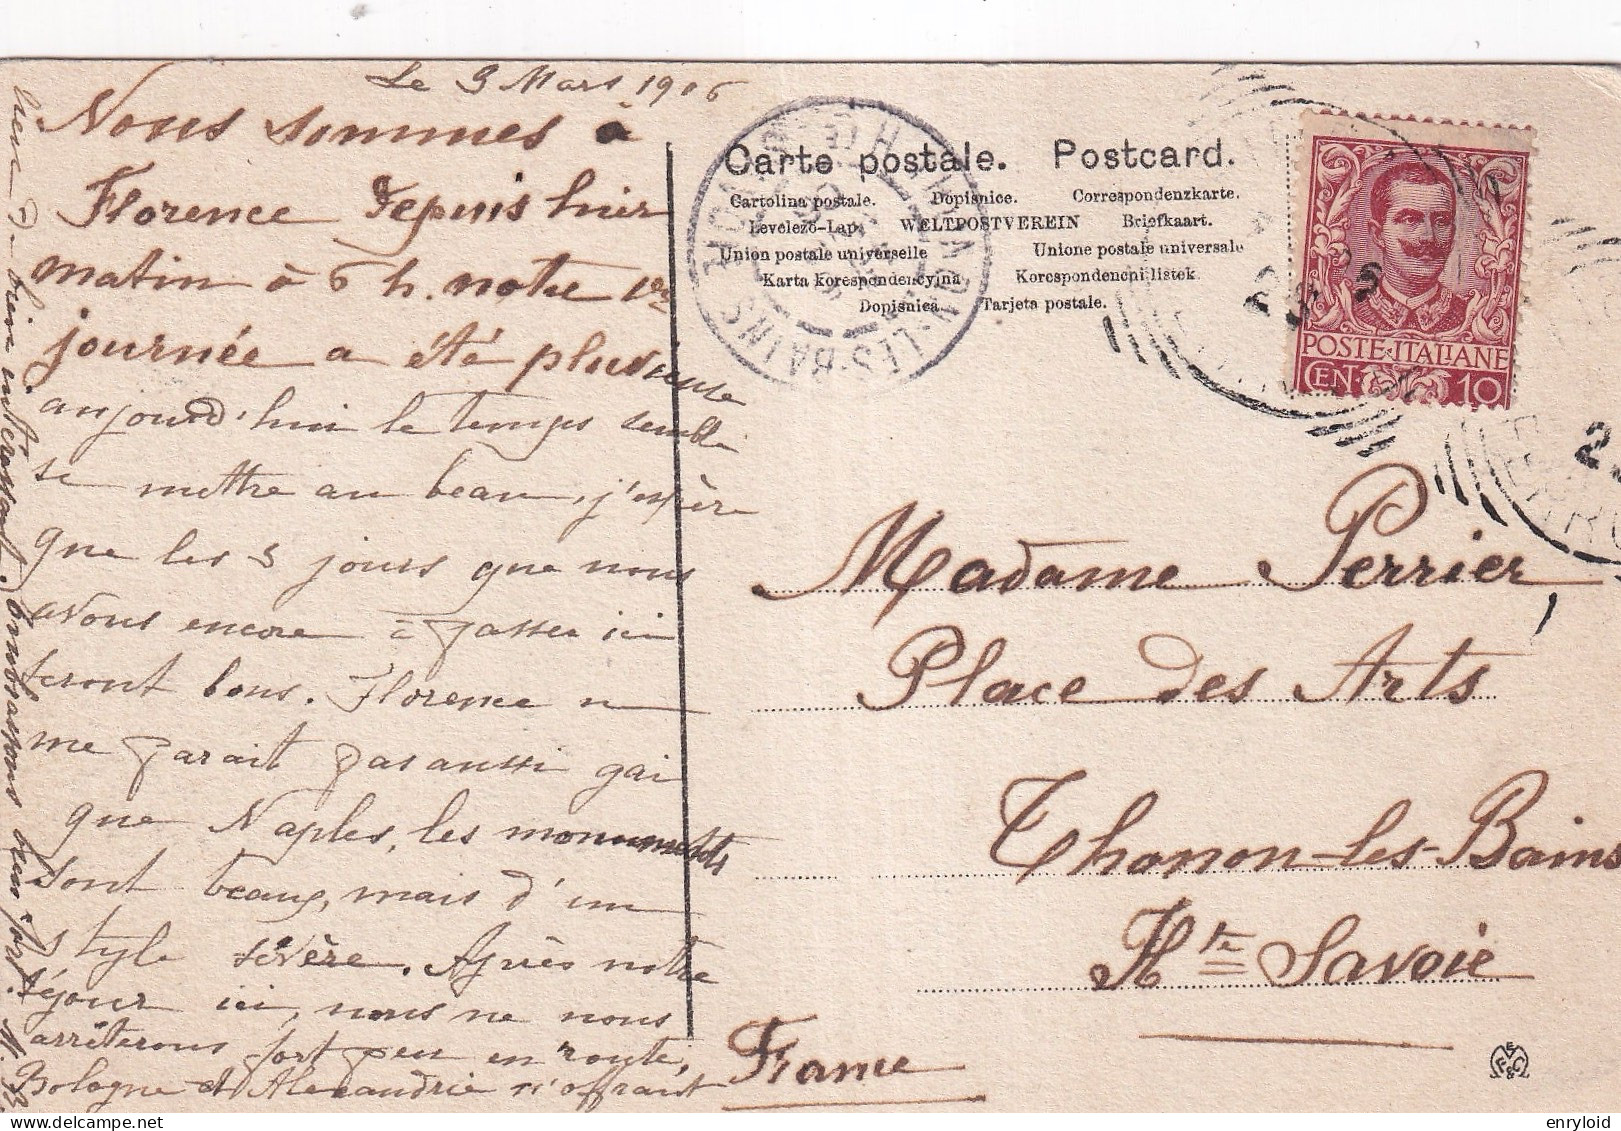 Le 3 Mars 1906
Nous sommes à
Florence depuis hier
matin à 6 h. notre 1ère
journée a été pluvieuse
aujourd'hui le temps semble
se mettre au beau, j'espère
que les 3 jours que nous
avons encore à passer ici
seront bons. Florence ne
me parait pas aussi gai
que Naples, les monuments
sont beaux, mais d'un
style sévère. Après notre
séjour ici, nous ne nous
arrêterons fort peu en route,
Bologne et Alexandrie n'offrant
rien de bien intéressant. Embrassons bien fort. M. B.
Carte postale. Postcard.
Cartolina postale. Dopisnice. Correspondenzkarte.
Levelezö-Lap. WELTPOSTVEREIN Briefkaart.
Union postale universelle Unione postale universale
Karta korespondencyjna Korespondenčni listek.
Dopisnica Tarjeta postale.
THONON-LES-BAINS
HTE SAVOIE
POSTE·ITALIANE
CEN· 10
Madame Perrier,
Place des Arts
Thonon-les-Bains
Hte Savoie
France
enryloid